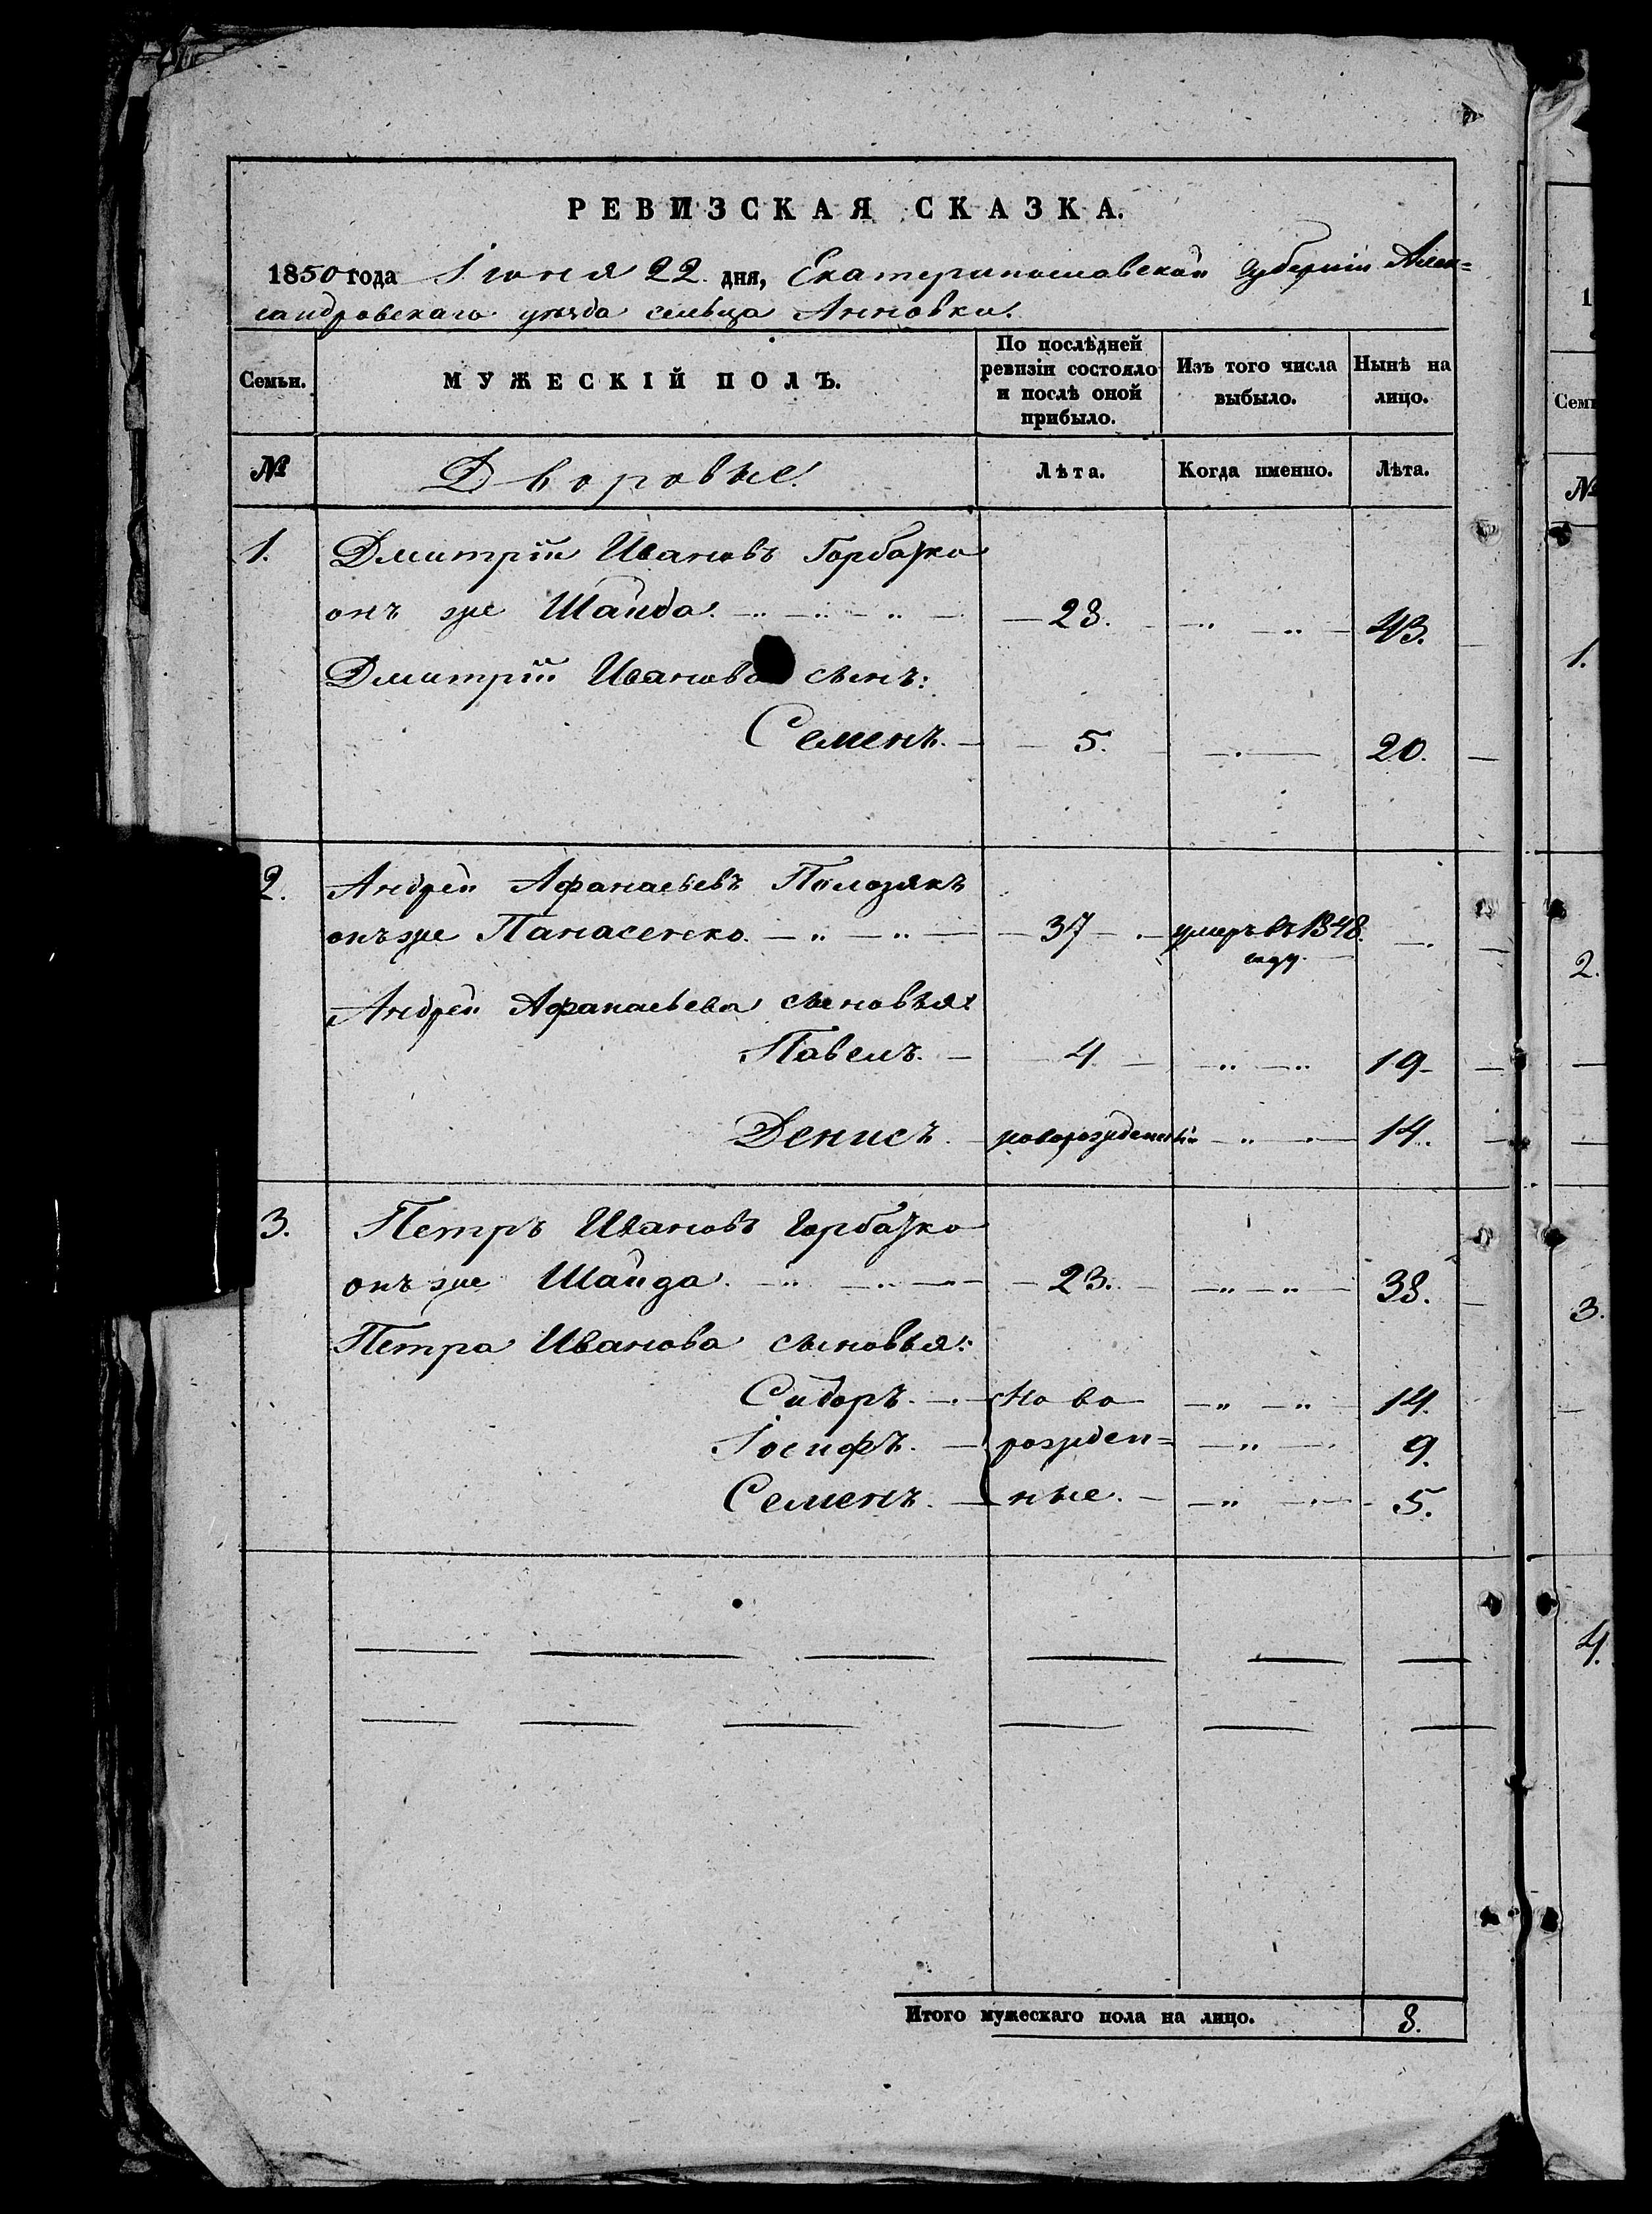 РЕВИЗСКАЯ СКАЗКА.
1850 года Іюня 22 дня, Екатеринославской Губерніи Алек=
сандровскаго уѣзда сельца Анновки.
Семьи.
МУЖЕСКІЙ ПОЛЪ.
По послѣдней ревизіи состояло и послѣ оной прибыло.
Изъ того числа выбыло.
Нынѣ на лицо.
№
Дворовые.
Лѣта.
Когда именно.
Лѣта.
1. Дмитрій Ивановъ
онъ же Шайда. 28. 43.
Дмитрій Иванова сынъ:
Семенъ. 5. 20.
2. Андрей Афанасьевъ
онъ же Панасенко. 37 умеръ въ 1848.
году
Андрей Афанасьева сыновья:
Павелъ. 4 19
Денисъ. 14.
3. Петръ Ивановъ
онъ же Шайда. 23. 38.
Петра Иванова сыновья:
Сидоръ. Ново 14.
Іосифъ. рожден= 9.
Семенъ. ные. 5.
Итого мужескаго пола на лицо. 8.
1
Семь
№
1.
2.
3.
4.